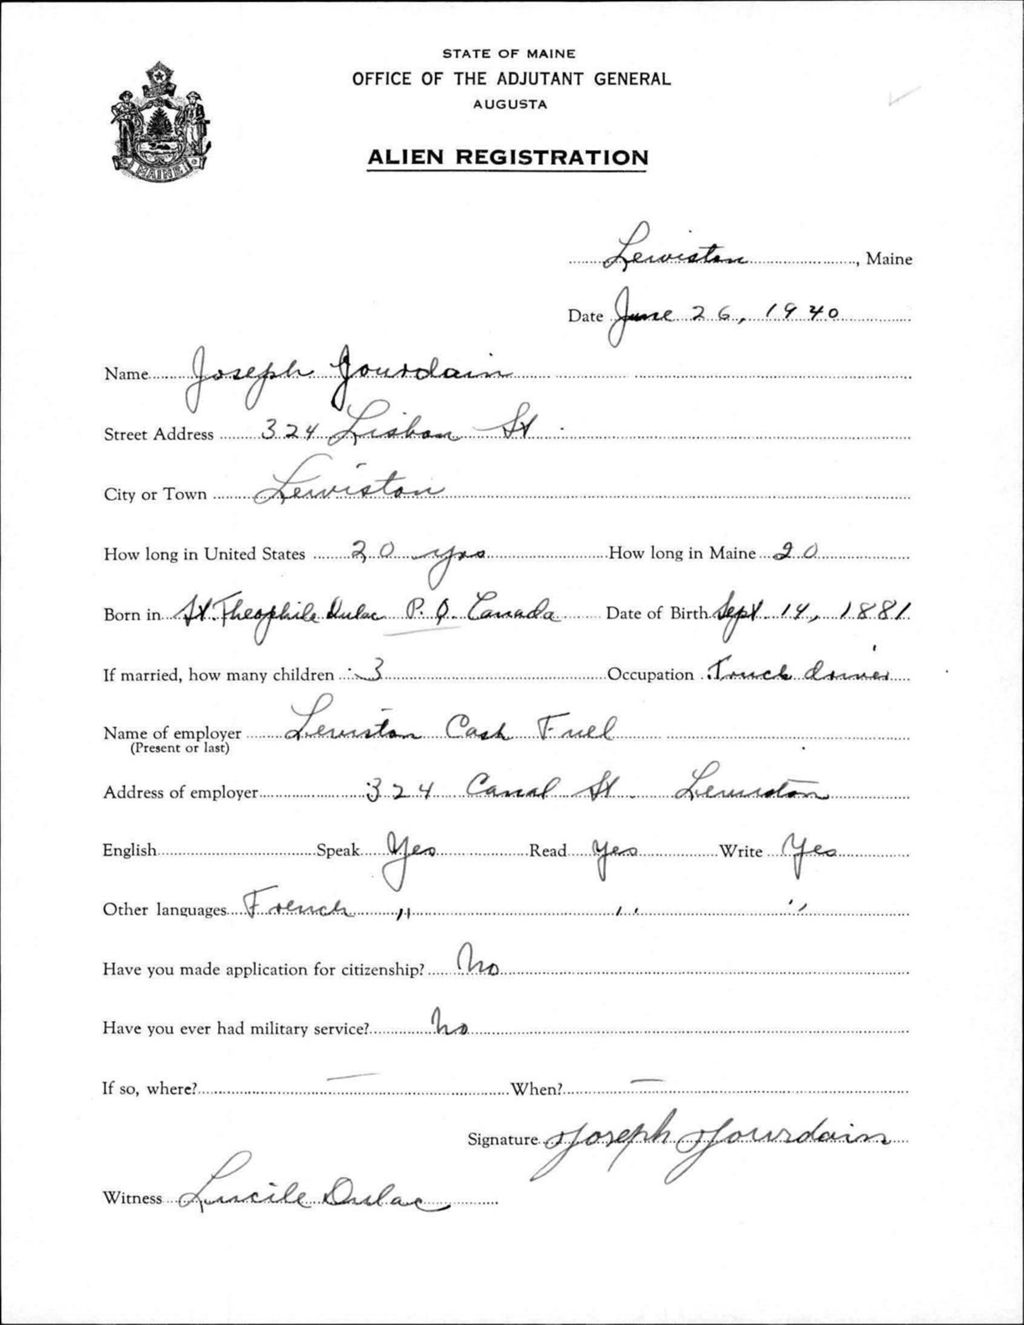 STATE OF MAINE
OFFICE OF THE ADJUTANT GENERAL
AUGUSTA
ALIEN REGISTRATION
MAINE
Lewiston, Maine
Date June 26, 1940
Name Joseph Jourdain
Street Address 324 Lisbon St.
City or Town Lewiston
How long in United States 20 yrs How long in Maine 20
Born in St. Theophile Dulac P.Q. Canada Date of Birth Sept 14, 1881
If married, how many children 3 Occupation Truck driver
Name of employer Lewiston Cash Fuel
(Present or last)
Address of employer 324 Canal St. Lewiston
English Speak Yes Read Yes Write Yes
Other languages French " " "
Have you made application for citizenship? No
Have you ever had military service? No
If so, where? — When? —
Signature Joseph Jourdain
Witness Lucile Dulac